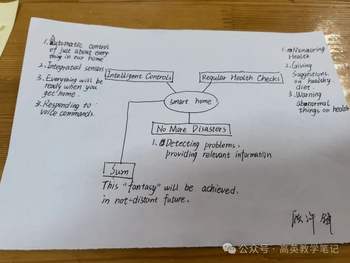 1. Automatic control
of just about every
thing in our home
2. Integrated sensors
3. Everything will be
ready when you
get home.
4. Responding to
voice commands
Intelligent Controls
Regular Health Checks
1. Monitoring
Health
2. Giving
suggestions
on healthy
diet.
3. Warning
abnormal
things on health
smart home
No More Disasters
1. Detecting problems,
providing relevant information
Sum
This "fantasy" will be achieved
in not-distant future.
公众号 · 高英教学笔记